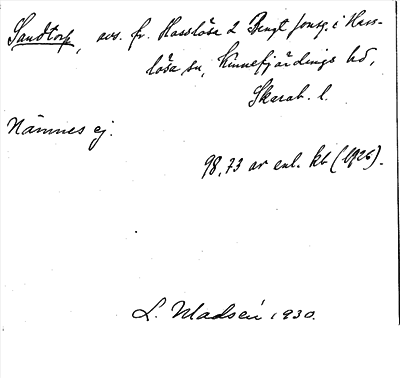 Sandtorp, avs. fr. Hasslösa 2 Bengt Jonsg. i Hass-
lösa sn, Kinnefjärdings hd,
Skarab. l.
Nämnes ej.
98,73 ar enl. kb (1926).
L. Madsén 1930.